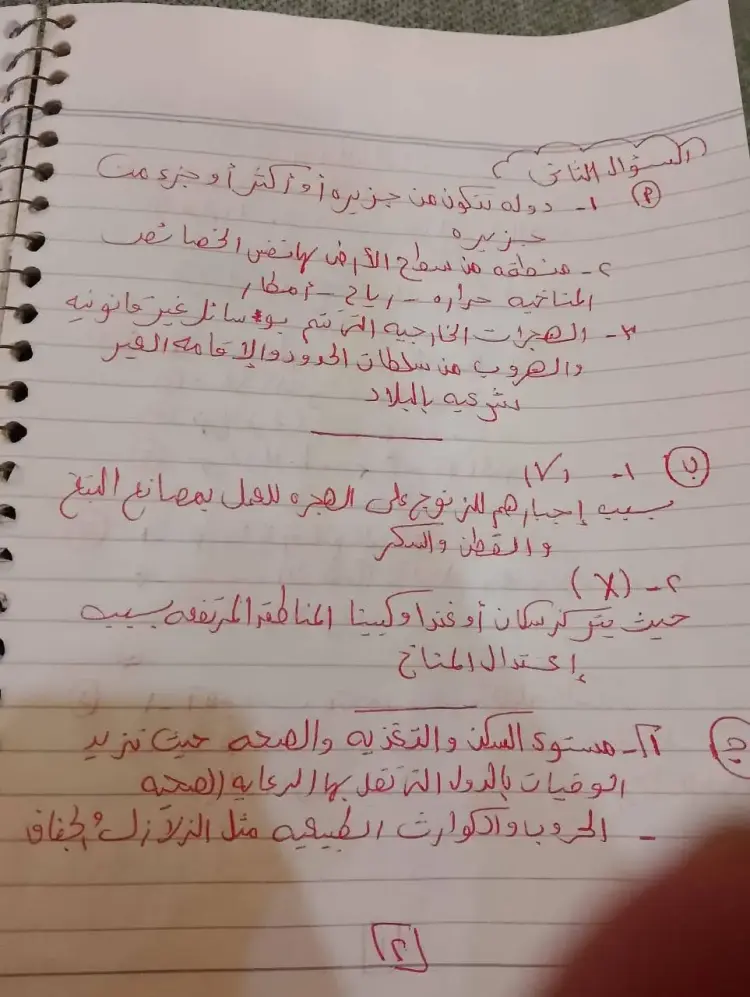 السؤال الثانى
(أ) ١- دوله تتكون من جزيره أو أكثر أو جزء من
جزيره
٢- منطقه من سطح الأرض لها نفس الخصائص
المناخيه حراره - رياح - أمطار
٣- الهجرات الخارجيه التى تتم بوسائل غير قانونيه
والهروب من سلطات الحدود والإقامه الغير
شرعيه بالبلاد
(ب) ١- (√)
بسبب إجبارهم للزنوج على الهجره للعمل بمصانع التبغ
والقطن والسكر
٢- (X)
حيث يتركز سكان أوغندا وكينيا المناطق المرتفعه بسبب
إعتدال المناخ
(ج) ١- مستوى السكن والتغذيه والصحه حيث تزيد
الوفيات بالدول التى تقل بها الرعايه الصحه
- الحروب والكوارث الطبيعيه مثل الزلازل والجفاف
[٢]